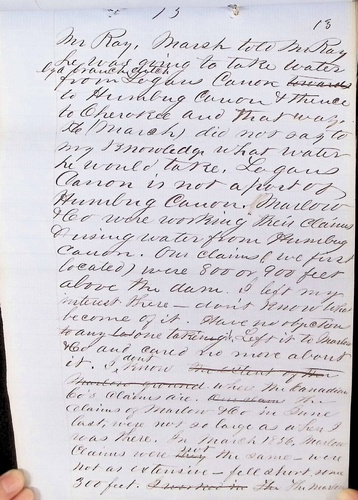 13
13
Mr Ray. Marsh told Mr Ray
he was going to take water
by a branch ditch
from Logans Canon towards
to Humbug Canon & thence
to Cherokee and that way.
He (Marsh) did not say to
my knowledge what water
he would take. Logans
Canon is not a part of
Humbug Canon. Marlow
& Co were working their claims
using water from Humbug
Canon. Our claims (we first
located) were 800 or 900 feet
above the dam. I left my
interest there - don't know what
become of it. Have no objection
to any one taking it. Left it to Marlow
& Co and cared no more about
it. I don't know the extent of the
Marlow ground where the Canadian
Co's claims are. The
claims of Marlow & Co in June
last, were not so large as when I
was there. In March 1856, Marlow
Claims were not the same - were
not as extensive - fell short some
300 feet. I the Marlow